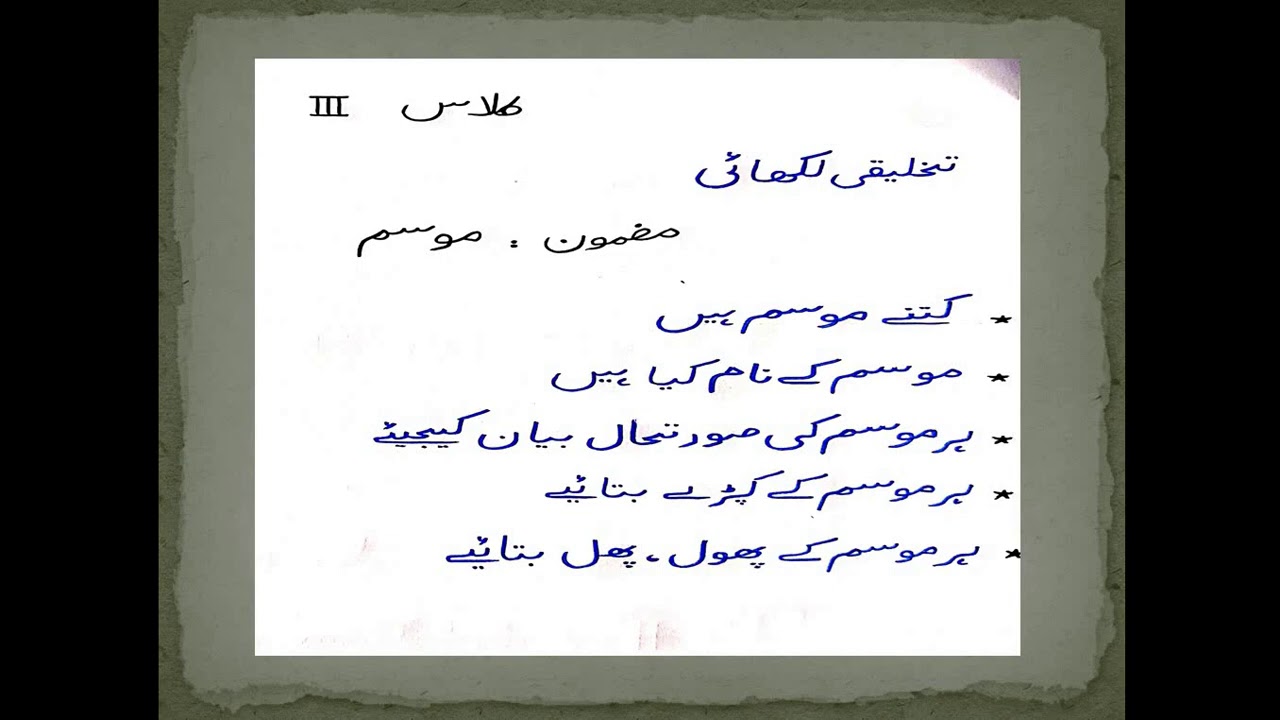 کلاس III
تخلیقی لکھائی
مضمون : موسم
* کتنے موسم ہیں
* موسم کے نام کیا ہیں
* ہر موسم کی صورتحال بیان کیجیئے
* ہر موسم کے کپڑے بتائیے
* ہر موسم کے پھول، پھل بتائیے